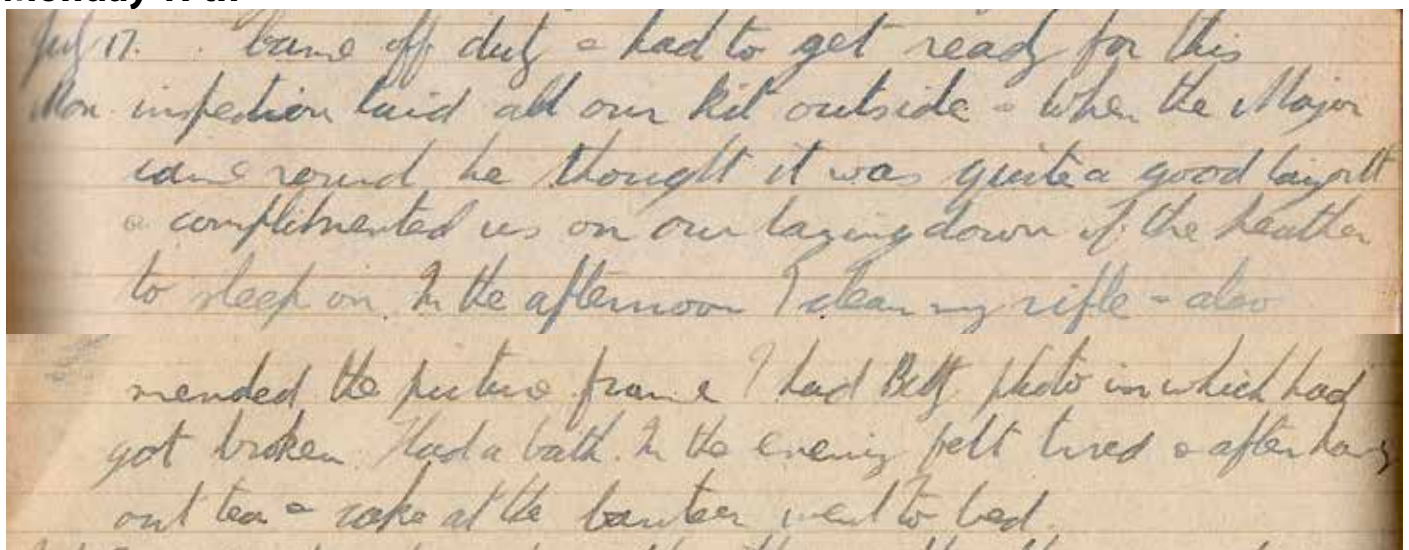 July 17. Came off duty & had to get ready for this
Mon. inspection laid all our kit outside & when the Major
came round he thought it was quite a good layout
& complimented us on our laying down of the heather
to sleep on. In the afternoon I clean my rifle & also
mended the picture frame I had Betty photo in which had
got broken. Had a bath. In the evening felt tired & after having
our tea & cake at the canteen went to bed.